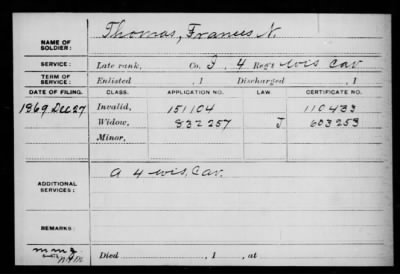 NAME OF SOLDIER: Thomas, Frances N.
SERVICE: Late rank, Co. I, 4 Reg't Wis Cav
TERM OF SERVICE: Enlisted , 1 Discharged , 1
DATE OF FILING. CLASS. APPLICATION NO. LAW. CERTIFICATE NO.
1869 Dec 27 Invalid, 151104 110433
Widow, 832257 J 603253
Minor,
ADDITIONAL SERVICES: A 4 Wis. Cav.
REMARKS:
Died , 1 , at